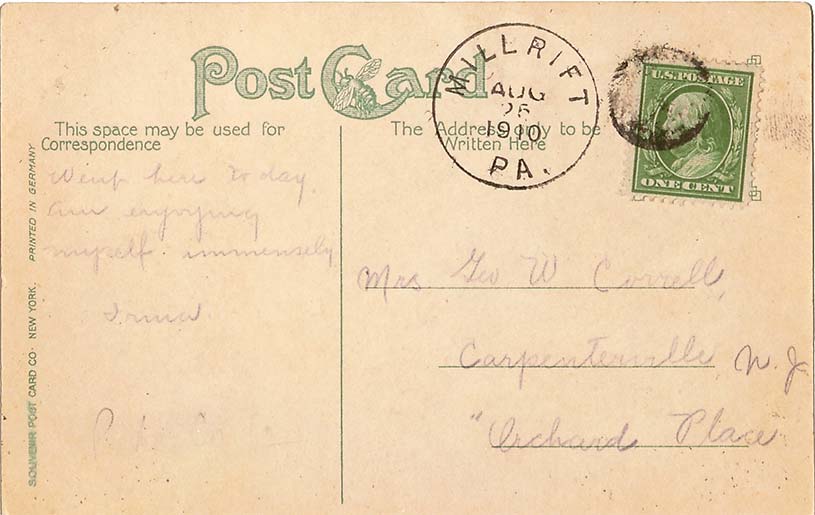 Post Card
MILLRIFT
AUG
1910
PA.
U.S. POSTAGE
ONE CENT
This space may be used for
Correspondence
The Address only to be
Written Here
here to day.
am enjoying
myself immensely
Irma.
Mrs. Geo W Correll,
Carpenterville N. J
"Orchard Place
PRINTED IN GERMANY
SOUVENIR POST CARD CO. NEW YORK.